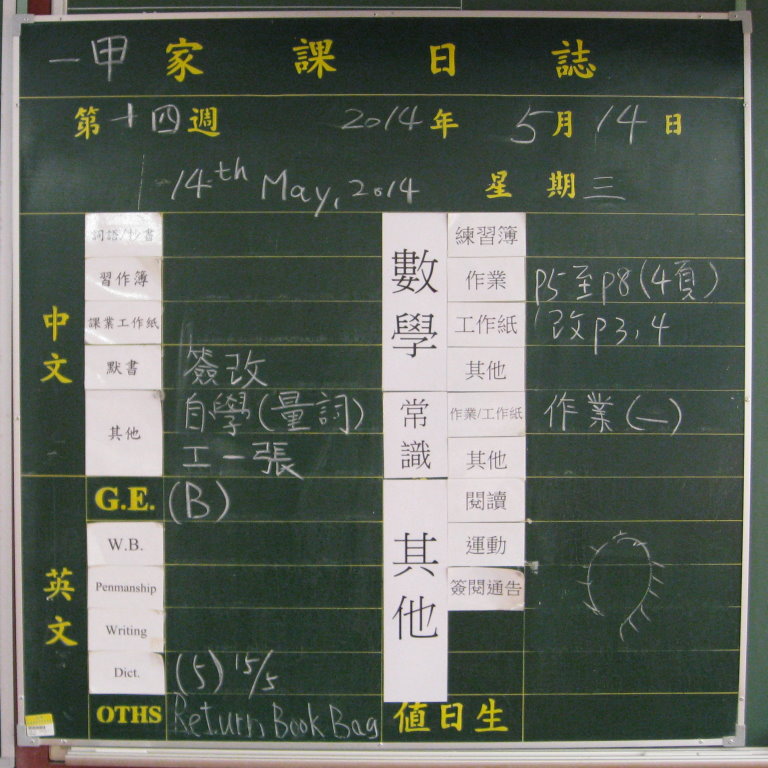 一甲 家課日誌
第十四週 2014年 5月14日
14th May, 2014 星期三
中文
詞語/抄書
習作簿
課業工作紙
默書 簽改
其他 自學(量詞)
工一張
英文
G.E. (B)
W.B.
Penmanship
Writing
Dict. (5) 15/5
OTHS Return Book Bag
數學
練習簿
作業 p5至p8(4頁)
工作紙 改p3,4
其他
常識
作業/工作紙 作業(一)
其他
其他
閱讀
運動
簽閱通告
值日生